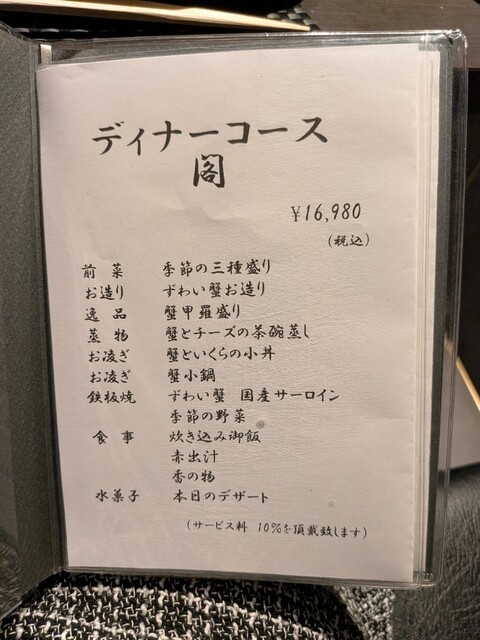 ディナーコース
閣
¥16,980
(税込)
前菜 季節の三種盛り
お造り ずわい蟹お造り
逸品 蟹甲羅盛り
蒸物 蟹とチーズの茶碗蒸し
お凌ぎ 蟹といくらの小丼
お凌ぎ 蟹小鍋
鉄板焼 ずわい蟹 国産サーロイン
季節の野菜
食事 炊き込み御飯
赤出汁
香の物
水菓子 本日のデザート
(サービス料 10%を頂戴致します)